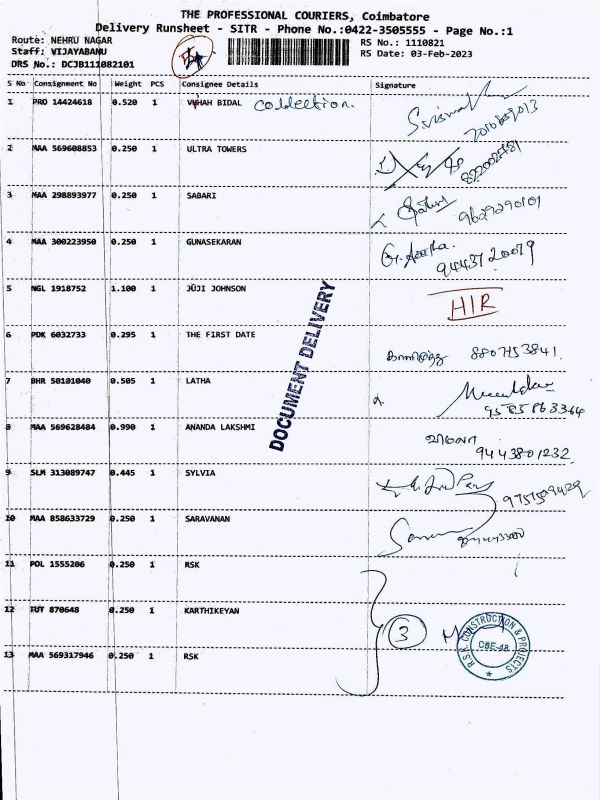 THE PROFESSIONAL COURIERS, Coimbatore
Delivery Runsheet - SITR - Phone No.:0422-3505555 - Page No.:1
Route: NEHRU NAGAR
Staff: VIJAYABANU
DRS No.: DCJB111082101
RS No.: 1110821
RS Date: 03-Feb-2023
S No Consignment No Weight PCS Consignee Details Signature
1 PRO 14424618 0.520 1 BIDAL
2 MAA 569608853 0.250 1 ULTRA TOWERS
3 MAA 298893977 0.250 1 SABARI 9629290101
4 MAA 300223950 0.250 1 GUNASEKARAN
9443720079
5 NGL 1918752 1.100 1 JUJI JOHNSON HIR
6 PDK 6032733 0.295 1 THE FIRST DATE 8807153841.
7 BHR 50101040 0.505 1 LATHA
9585863364
8 MAA 569628484 0.990 1 ANANDA LAKSHMI
9443801232
9 SLM 313089747 0.445 1 SYLVIA
10 MAA 858633729 0.250 1 SARAVANAN
11 POL 1555206 0.250 1 RSK
12 TUT 870648 0.250 1 KARTHIKEYAN 3
13 MAA 569317946 0.250 1 RSK
DOCUMENT DELIVERY
R.S.K. CONSTRUCTION & PROJECTS
CBE-48